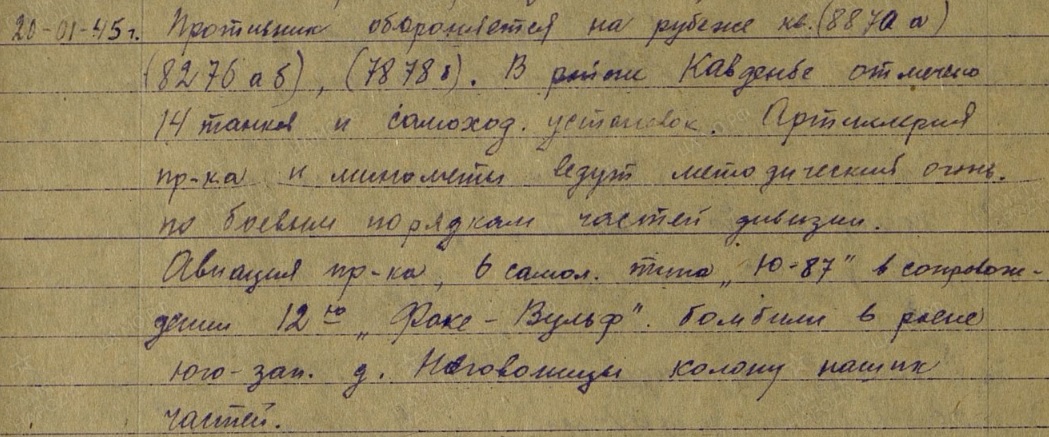 20-01-45 г. Противник обороняется на рубеже кв. (8870 а)
(8276 а б), (7878 б). В районе Кавденье отмечено
14 танков и самоход. установок. Артиллерия
пр-ка и минометы ведут методический огонь.
по боевым порядкам частей дивизии.
Авиация пр-ка, 6 самол. типа „Ю-87" в сопровож-
дении 12ю „Фоке-Вульф". бомбили в р-оне
юго-зап. д. колону наших
частей.